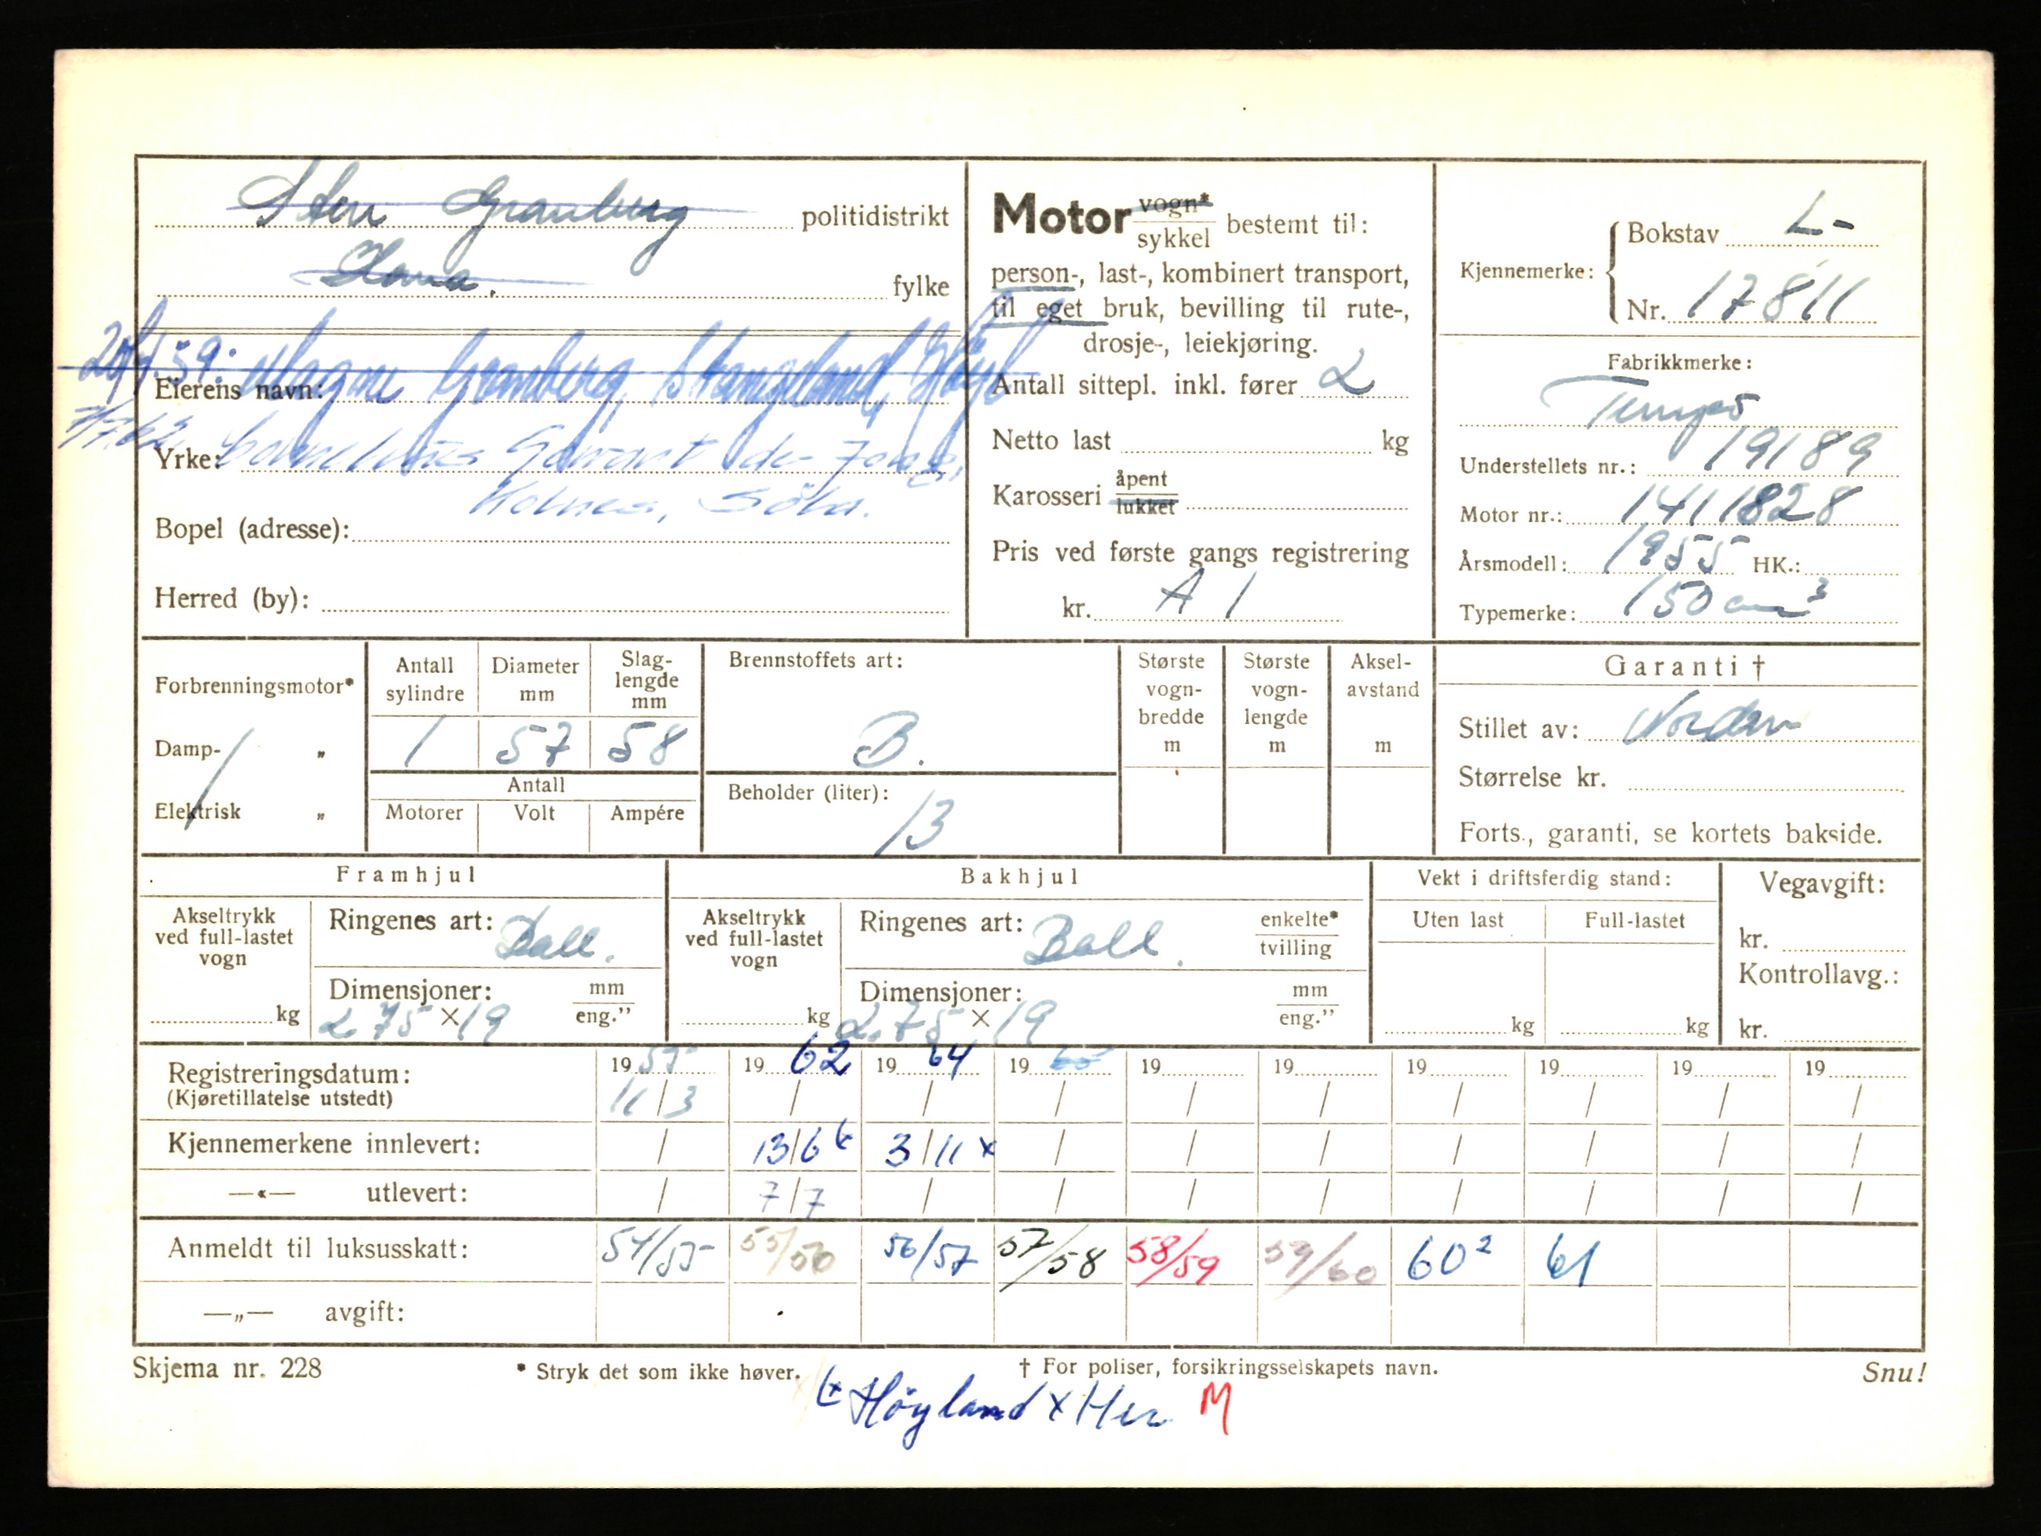 Sten Granberg politidistrikt
Hana. fylke
59: Magne Granberg, Stangeland, Høyl
Eierens navn:
7/7.62 Cornelius Garmont de
Yrke:
Kolnes, Sola.
Bopel (adresse):
Herred (by):
Motor vogn*/sykkel bestemt til:
person-, last-, kombinert transport,
til eget bruk, bevilling til rute-,
drosje-, leiekjøring.
Antall sittepl. inkl. fører 2
Netto last kg
Karosseri åpent/lukket
Pris ved første gangs registrering
kr. A 1
Kjennemerke: Bokstav L-
Nr. 17811
Fabrikkmerke:
Tempo
Understellets nr.: 19189
Motor nr.: 1411828
Årsmodell: 1955 HK.:
Typemerke: 150 cm³
Forbrenningsmotor*
Damp- „
Elektrisk „
Antall sylindre 1
Diameter mm 57
Slag-lengde mm 58
Antall
Motorer Volt Ampére
Brennstoffets art:
B.
Beholder (liter):
13
Største vogn-bredde m
Største vogn-lengde m
Aksel-avstand m
Garanti †
Stillet av: Norden
Størrelse kr.
Forts., garanti, se kortets bakside.
Framhjul
Akseltrykk ved full-lastet vogn kg
Ringenes art: Ball.
Dimensjoner: mm/eng."
2.75 × 19
Bakhjul
Akseltrykk ved full-lastet vogn kg
Ringenes art: Ball. enkelte*/tvilling
Dimensjoner: mm/eng."
2.75 × 19
Vekt i driftsferdig stand:
Uten last Full-lastet
kg kg
Vegavgift:
kr.
Kontrollavg.:
kr.
Registreringsdatum: 1955 1962 1964 1965 19 19 19 19 19 19
(Kjøretillatelse utstedt) 11/3 / / / / / / / / /
Kjennemerkene innlevert: / 13/6 3/11 x / / / / / / /
—«— utlevert: / 7/7 / / / / / / / /
Anmeldt til luksusskatt: 54/55 55/56 56/57 57/58 58/59 59/60 60² 61
—„— avgift:
Skjema nr. 228 * Stryk det som ikke høver. † For poliser, forsikringsselskapets navn. Snu!
Høyland x Her M